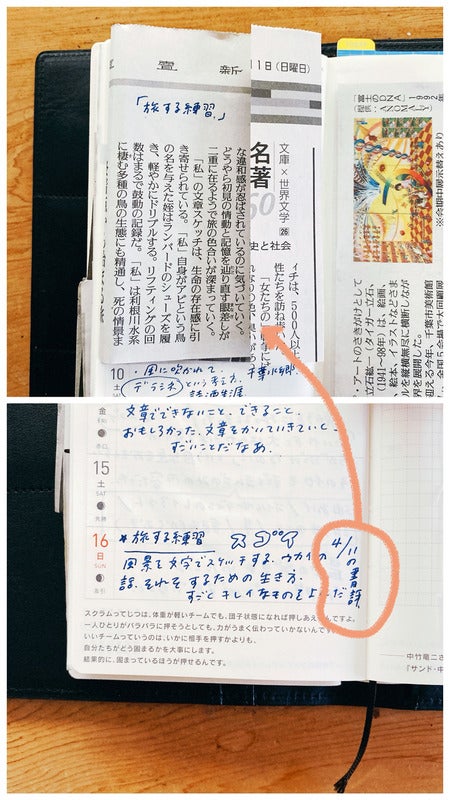 賣 新
11日(日曜日)
「旅する練習」
な違和感が忍ばされているのに気づいていく。
どうやら初見の情動と記憶を辿り直す眼差しが
二重に在るようで旅の色合いが深まっていく。
「私」の文章スケッチは、生命の存在感に引
き寄せられている。「私」自身がアビという鳥
の名を与えた姪はランパードのシューズを履
き、軽やかにドリブルする。リフティングの回
数はまるで鼓動の記録だ。「私」は利根川水系
に棲む多種の鳥の生態にも精通し、死の情景ま
文庫×世界文学 26
名著
60
史と社会
ィチは、500人以上
性たちを訪ね歩い
「富士のDNA」1992年
提供:ANOMALY
※会期中展示替えあり
・アートのさきがけとして
立石紘一(タイガー立石、
(1941〜98年)は、絵画、
絵本、イラストなどさま
を縦横無尽に横断しなが
世界を展開した。
迎える今年、千葉市美術館
全国5会場で大回顧
10
・風に吹かれて、
デラシネ という考え方
文章でできないこと、できること。
おもしろかった。文章をかいていきていく、
すごいことだなあ。
金
FRI
15
土
SAT
大安
16
日
SUN
友引
*旅する練習 スゴイ
風景を文字でスケッチする。
話。それをするための生き方。
すごく キレイなものをよんだ
4/11の書評
スクラムってじつは、体重が軽いチームでも、団子状態になれば押しあえるんですよ。
一人ひとりがバラバラに押そうとしても、力がうまく伝わっていかないんです。
いいチームっていうのは、いかに相手を押すかよりも、
自分たちがどう固まるかを大事にします。
結果的に、固まっているほうが押せるんです。
中竹竜二さ
『サンド・中